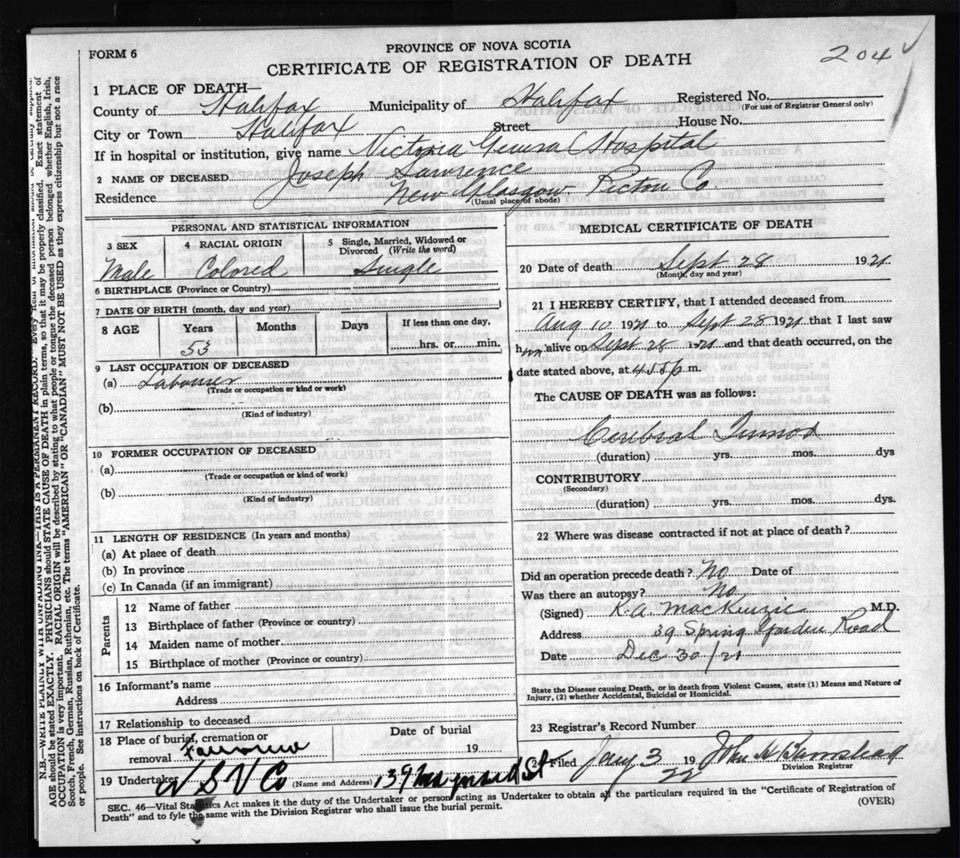 FORM 6
PROVINCE OF NOVA SCOTIA
CERTIFICATE OF REGISTRATION OF DEATH
204 ✓
1 PLACE OF DEATH—
County of Halifax Municipality of Halifax Registered No.
(For use of Registrar General only)
City or Town Halifax Street House No.
If in hospital or institution, give name Victoria General Hospital
2 NAME OF DECEASED Joseph Lawrence
Residence New Glasgow Pictou Co.
(Usual place of abode)
PERSONAL AND STATISTICAL INFORMATION
3 SEX 4 RACIAL ORIGIN 5 Single, Married, Widowed or Divorced (Write the word)
Male Colored Single
6 BIRTHPLACE (Province or Country)
7 DATE OF BIRTH (month, day and year)
8 AGE Years Months Days If less than one day,
53 hrs. or min.
9 LAST OCCUPATION OF DECEASED
(a) Labourer
(Trade or occupation or kind or work)
(b)
(Kind of industry)
10 FORMER OCCUPATION OF DECEASED
(a)
(Trade or occupation or kind of work)
(b)
(Kind of industry)
11 LENGTH OF RESIDENCE (In years and months)
(a) At place of death
(b) In province
(c) In Canada (if an immigrant)
Parents
12 Name of father
13 Birthplace of father (Province or country)
14 Maiden name of mother
15 Birthplace of mother (Province or country)
16 Informant's name
Address
17 Relationship to deceased
18 Place of burial, cremation or removal Date of burial
19
19 Undertaker (Name and Address) 139 Maynard St
MEDICAL CERTIFICATE OF DEATH
20 Date of death Sept 28 1921
(Month, day and year)
21 I HEREBY CERTIFY, that I attended deceased from
Aug 10 1921 to Sept 28 1921 that I last saw
him alive on Sept 28 1921 and that death occurred, on the
date stated above, at 4.55 p.m.
The CAUSE OF DEATH was as follows:
Cerebral Tumor
(duration) yrs. mos. dys
CONTRIBUTORY
(Secondary)
(duration) yrs. mos. dys.
22 Where was disease contracted if not at place of death?
Did an operation precede death? No Date of
Was there an autopsy? No
(Signed) K. A. MacKenzie M.D.
Address 39 Spring Garden Road
Date Dec 30/21
State the Disease causing Death, or in death from Violent Causes, state (1) Means and Nature of Injury, (2) whether Accidental, Suicidal or Homicidal.
23 Registrar's Record Number
24 Filed Jany 3 19 22
Division Registrar
SEC. 46—Vital Statistics Act makes it the duty of the Undertaker or person acting as Undertaker to obtain all the particulars required in the "Certificate of Registration of
Death" and to fyle the same with the Division Registrar who shall issue the burial permit. (OVER)
N.B.—WRITE PLAINLY WITH UNFADING INK—THIS IS A PERMANENT RECORD.
AGE should be stated EXACTLY. PHYSICIANS should STATE CAUSE OF DEATH in plain terms, so that it may be properly classified. Exact statement of
OCCUPATION is very important. RACIAL ORIGIN will be described by stating to what people or tongue the deceased person belonged whether English, Irish,
Scotch, French, German, Russian, Ruthenian, etc. The terms "AMERICAN" OR "CANADIAN" MUST NOT BE USED as they express citizenship but not a race
or people. See instructions on back of Certificate.